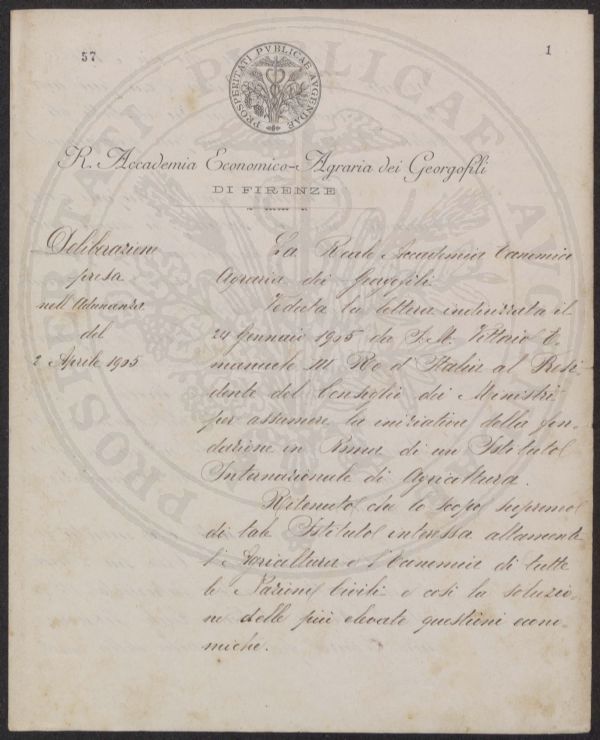 57
1
PROSPERITATI PVBLICAE AVGENDAE
R. Accademia Economico-Agraria dei Georgofili
DI FIRENZE
Deliberazione
presa
nell'Adunanza
del
2 Aprile 1905
La Reale Accademia Economica
Agraria dei Georgofili
Veduta la lettera indirizzata il
24 Gennaio 1905 da S. M. Vittorio E-
manuele III Re d'Italia al Presi-
dente del Consiglio dei Ministri
per assumere la iniziativa della fon-
dazione in Roma di un Istituto
Internazionale di Agricoltura.
Ritenuto che lo scopo supremo
di tale Istituto interessa altamente
l'Agricoltura e l'Economia di tutte
le Nazioni Civili e così la soluzio-
ne delle più elevate questioni econo-
miche.
PROSPERITATI PUBLICAE AUGENDAE